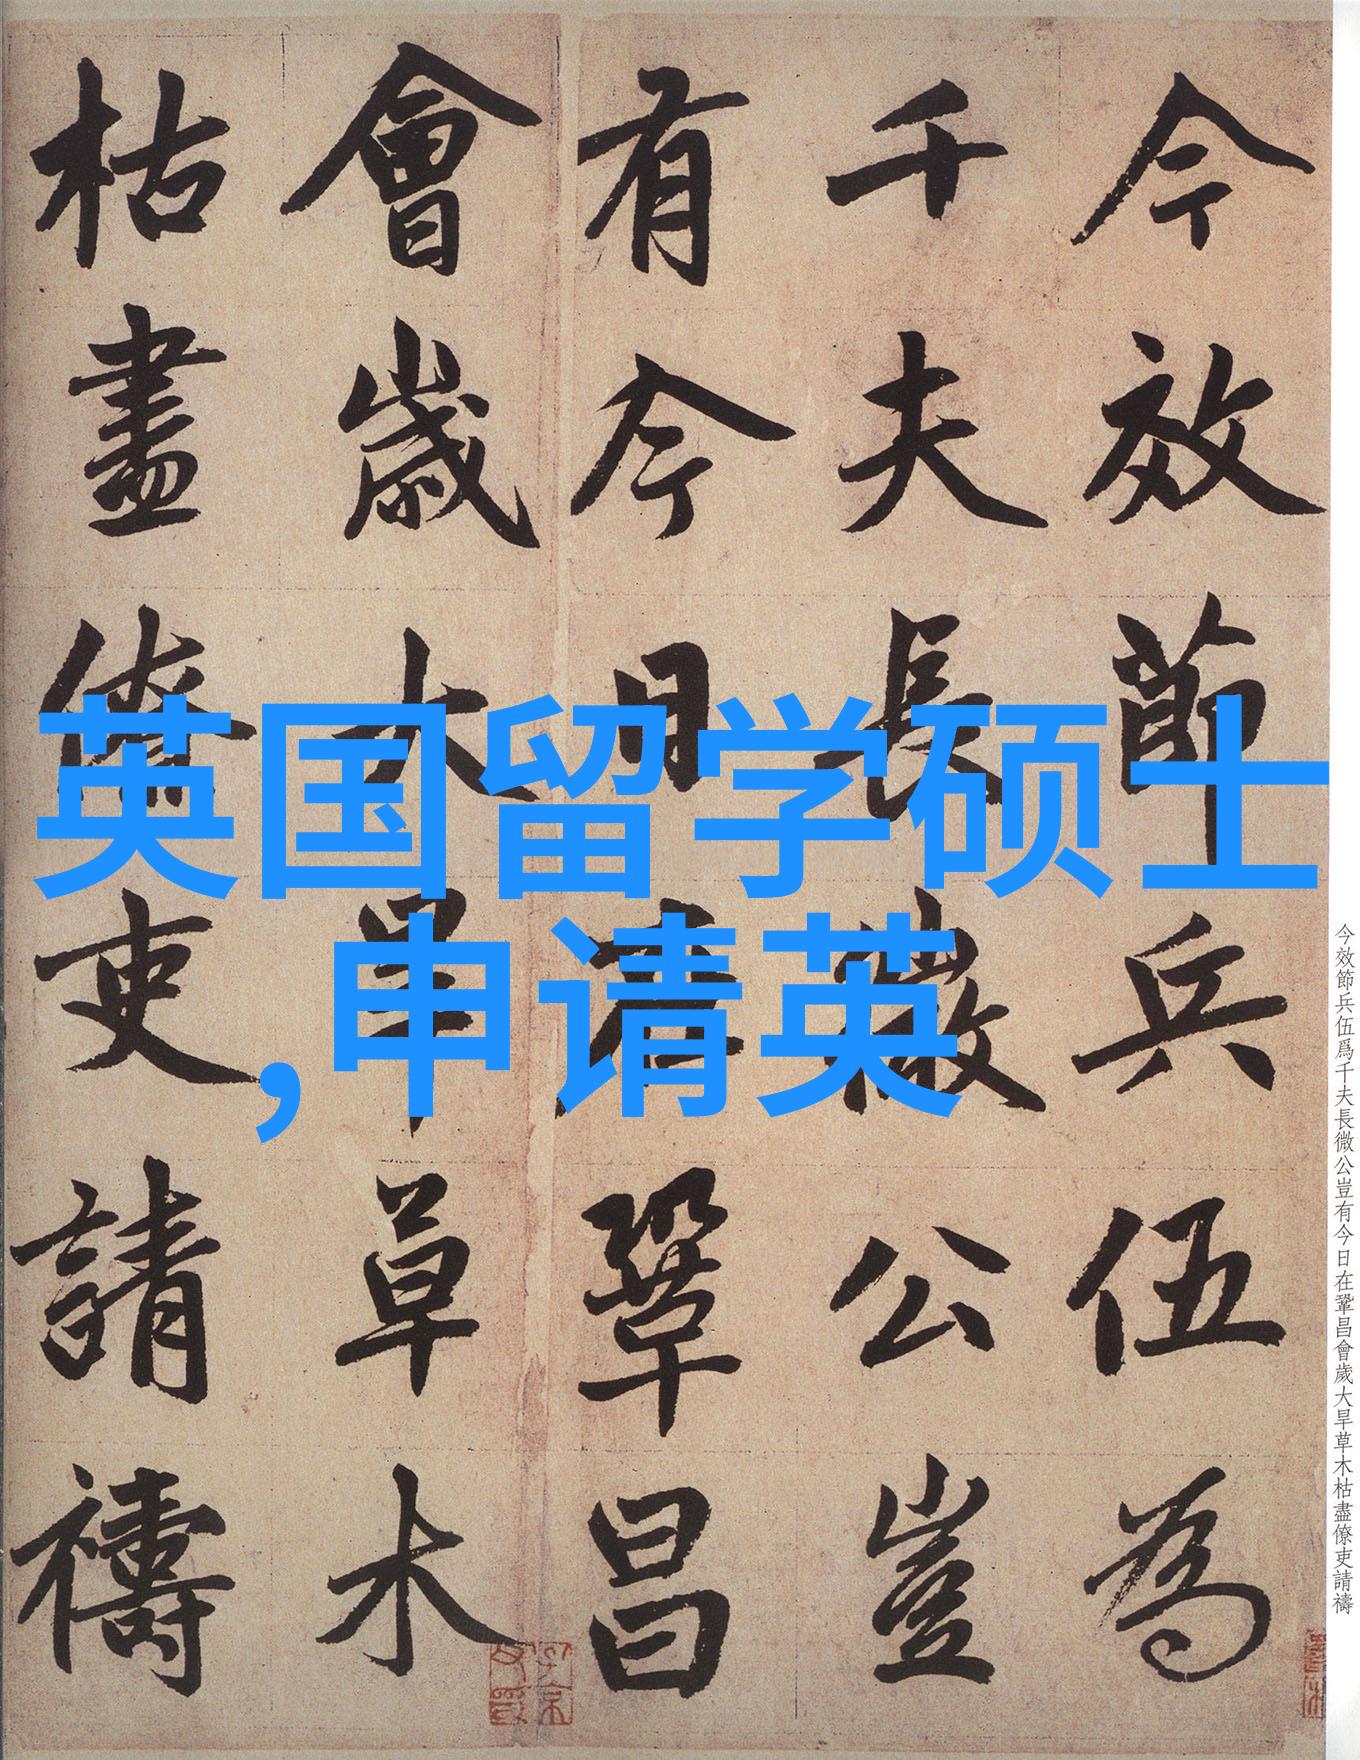 今效節兵伍為
千夫長微公豈
有今日在鞏昌
會歲大旱草木
枯盡僚吏請禱
英国留学硕士
,申请英
今效節兵伍爲千夫長微公豈有今日在鞏昌會歲大旱草木枯盡僚吏請禱